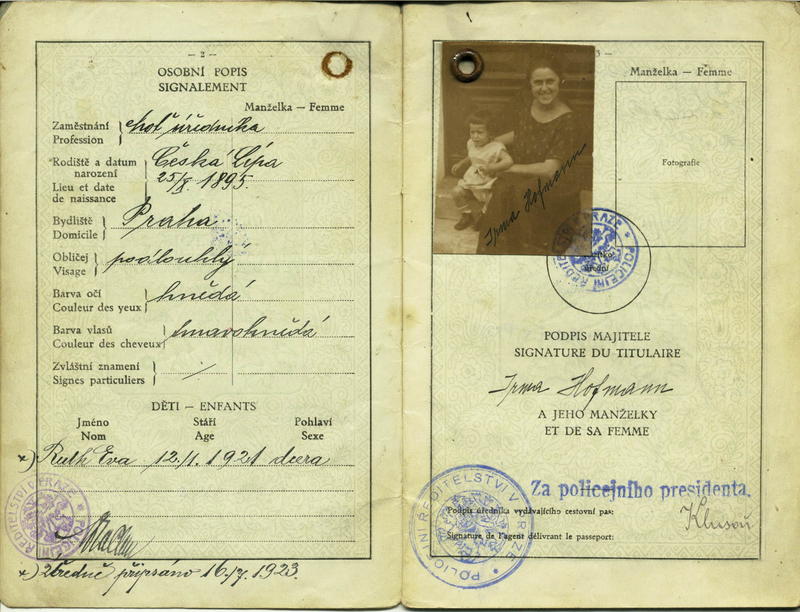 — 2 —
OSOBNÍ POPIS
SIGNALEMENT
Manželka — Femme
Zaměstnání
Profession
choť úředníka
Rodiště a datum
narození
Lieu et date
de naissance
Česká Lípa
25/X. 1895.
Bydliště
Domicile
Praha
Obličej
Visage
podlouhlý
Barva očí
Couleur des yeux
hnědá
Barva vlasů
Couleur des cheveux
tmavohnědá
Zvláštní znamení
Signes particuliers
DĚTI — ENFANTS
Jméno Stáří Pohlaví
Nom Age Sexe
x) Ruth Eva 12./1. 1921 dcera
POLICEJNÍ ŘEDITELSTVÍ V PRAZE
x) Úředně připsáno 1923.
3 —
Manželka — Femme
Fotografie
Irma Hofmann
POLICEJNÍ ŘEDITELSTVÍ V PRAZE
úřední
PODPIS MAJITELE
SIGNATURE DU TITULAIRE
Irma Hofmann
A JEHO MANŽELKY
ET DE SA FEMME
Za policejního presidenta.
Podpis úředníka vydávajícího cestovní pas:
Signature de l'agent délivrant le passeport:
POLICEJNÍ ŘEDITELSTVÍ V PRAZE